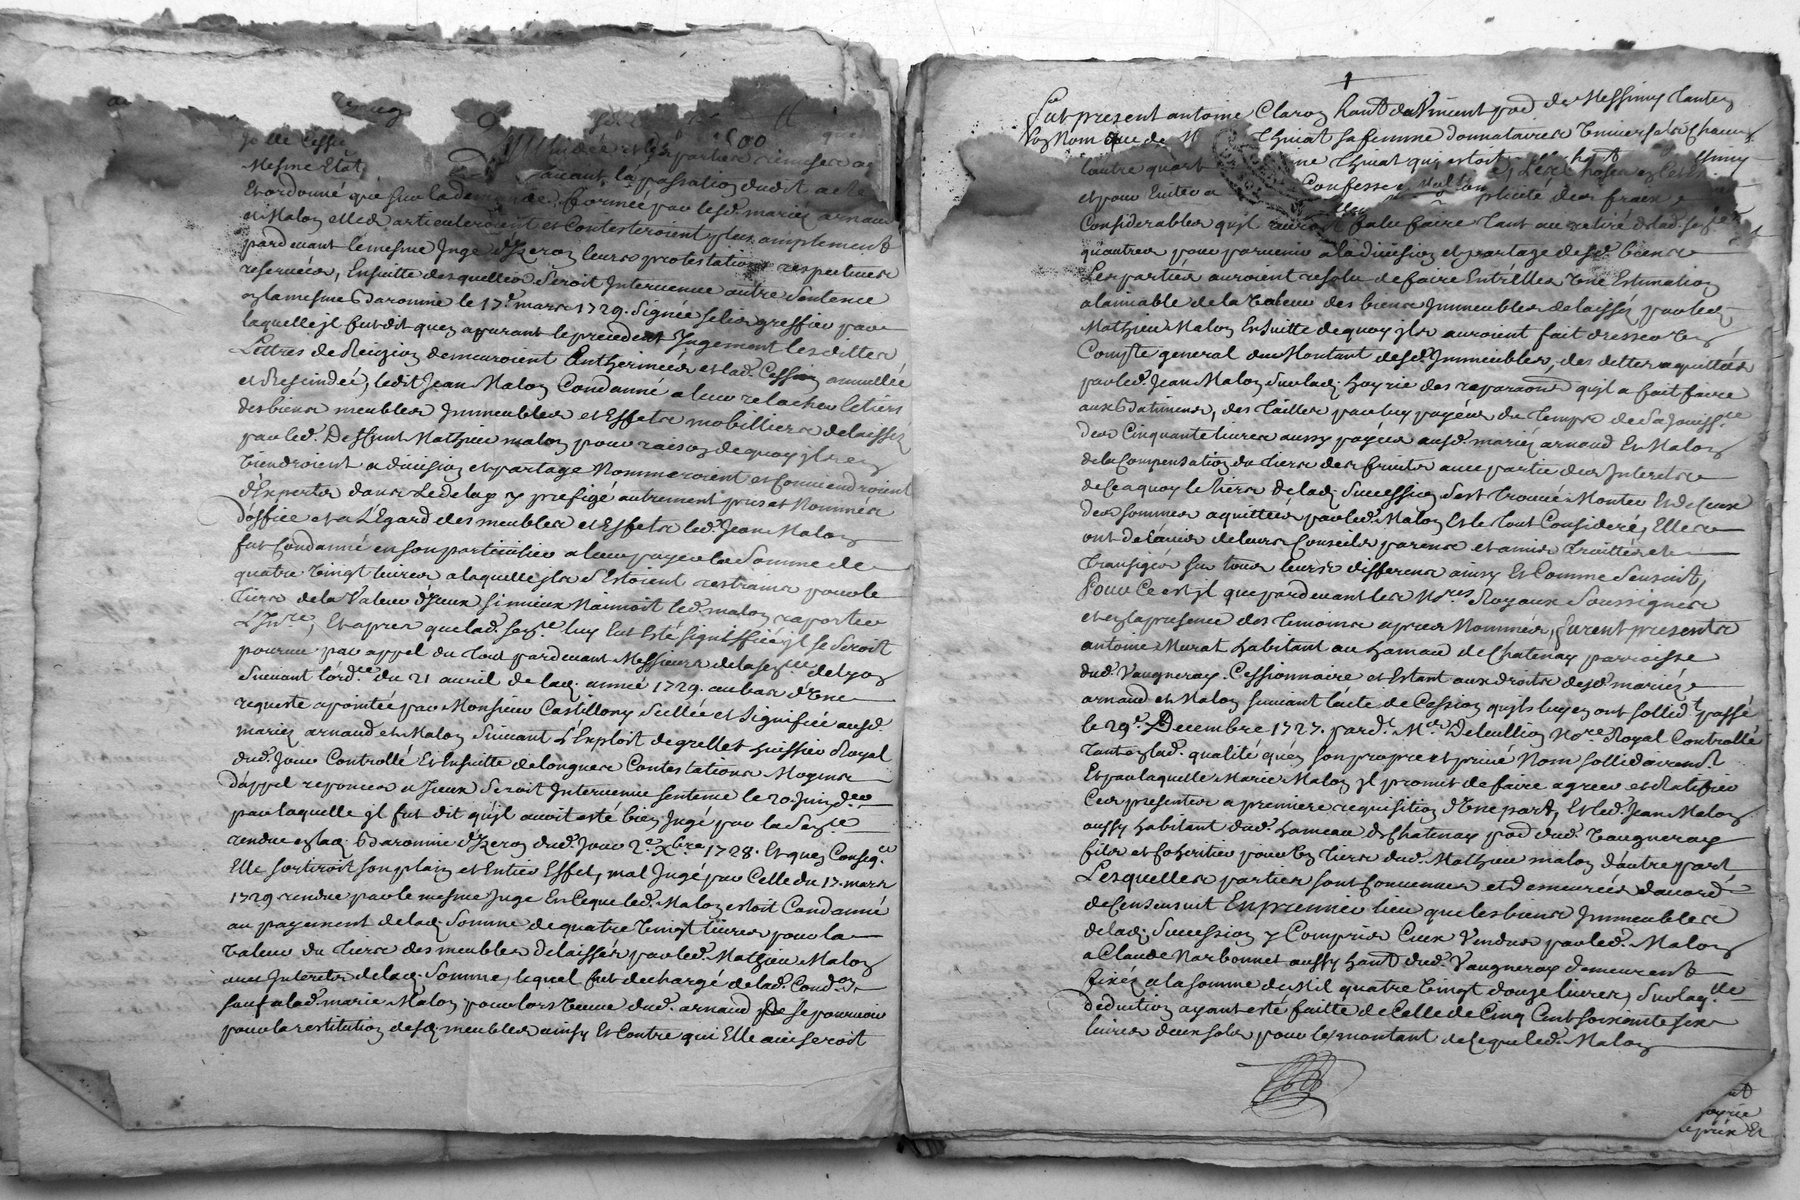 Mesme Etat
la passation dudit acte
Et ordonné que sur la demande formée par lesd. mariez arnaud
et Malon elles articuleroient et Contesteroient plus amplement
pardevant le mesme Juge d'Yzeron leurs protestations respectives
reservées, Ensuitte desquelles Seroit Intervenue autre Sentence
en la mesme Baronnie le 17e. mars 1729. Signée greffier par
laquelle il fut dit quen apurant le precedent Jugement les dittes
Lettres de Reizion demeuroient Entherinées et lad. Cession annullée
et Rescindée, ledit Jean Malon Condanné a leur relacher le tiers
des biens meubles Immeubles et Effets mobilliers delaissez
par led. Deffunt Mathieu malon pour raison de quoy ils en
Viendroient a division et partage Nommeroient et Conviendroient
d'Experts dans le delay y prefigé autrement pris et Nommez
d'office et a L'Egard des meubles et Effets led. Jean Malon
fut Condanné en son particulier a leur payer la Somme de
quatre Vingt livres a laquelle ils s'Estoient restrains pour le
Tiers de la Valeur d'Iceux si mieux N'aimoit led. malon raporter
L'Invre, Et apres que lad. sente. luy Eut Esté signiffiée il se Seroit
pourvu par appel du tout pardevant Messieurs de la senlle de Lyon
Suivant l'ord.ce du 21 avril de lad. année 1729. au bas d'Une
requeste apointée par Monsieur Castillony Scellée et Signifiée ausd.
mariez arnaud et Malon Suivant L'Exploit de grellet huissier Royal
dud. Jour Controllé Et Ensuitte de longues Contestations Moyens
d'appel reponces a Iceux Seroit Intervenue sentence le 20. Juin d.
par laquelle il fut dit qu'il avoit esté bien Jugé par la Sente
rendue en lad. Baronnie d'Yzeron dud. Jour 2e. Xbre 1728. Et quen Conseq.ce
Elle sortiroit son plain et Entier Effet, mal Jugé par Celle du 17. mars
1729 rendue par le mesme Juge En ce que led. Malon estoit Condanné
au payement de lad. Somme de quatre Vingt livres pour la
Valeur du Tiers des meubles delaissés par led. Mathieu Malon
avec Interets de lad. Somme, lequel fut dechargé de lad. Cond.on
sauf a lad. marie Malon pour lors Veuve dud. arnaud De se pourvoir
pour la restitution desd. meubles ainsy Et Contre qui Elle aviseroit
Fut present antoine Claron habt. de Vincent par. de Messimy Tant en
son Nom que de Thivat sa femme donnataire Universele
Confesse
Considerables qu'il auroit falu faire Tant au retiré de lad. sente
quautres pour parvenir a la division et partage desd. biens
Les parties auroient resolu de faire Entr'Elles Une Estimation
a lamiable de la Valeur des biens Immeubles delaissés par led.
Mathieu Malon Ensuitte de quoy ils auroient fait dresser Un
Compte general du Montant desd. Immeubles, des dettes aquittées
par led. Jean Malon Sur lad. hoyrie des reparaons qu'il a fait faire
aux Batimens, des Tailles par luy payées du Temps de sa Jouissce
des Cinquante livres aussy payées ausd. mariez arnaud Et Malon
de la Compensation du Tiers des fruits avec partie des Interets
de Ce a quoy le tiers de lad. Succession s'est Trouvé Monter Et de Ceux
des sommes aquittées par led. Malon Et le Tout Consideré, Elles
ont de l'avis de leurs Conseils parens et amis Traittées et
Transigées sur tous leurs differens ainsy Et Comme s'ensuit,
Pour Ce est il que pardevant les Nores Royaux Soussignés
et en la presence des Temoins apres Nommés, furent presents
antoine Murat habitant au hameau de Chatenay parroisse
dud. Vaugneray. Cessionnaire et Estant aux droits desd. mariez
arnaud et Malon suivant l'acte de Cession qu'ils luy en ont sollidt. passé
le 29e. Decembre 1727. pard.t Me. Deleullion Nore Royal Controllé
Tant en lad. qualité qu'en son propre et privé Nom sollidairemt
Et par laquelle Marie Malon il promet de faire agreer et Ratifier
Ces presentes a premiere requisition d'Une part, Et led. Jean Malon
aussy habitant dud. hameau de Chatenay par. dud. Vaugneray
fils et Coheritier pour Un Tiers dud. Mathieu malon d'autre part
Lesquelles parties sont Convenues et demeurées d'acord
de Ce ensuit En premier lieu que les biens Immeubles
de lad. Succession y Compris Ceux Vendus par led. Malon
a Claude Narbonnet aussy habt. dud. Vaugneray demeurent
fixés a la somme de Mil quatre Vingt douze livres, Sur laq.lle
deduction ayant esté faitte de Celle de Cinq Cent soixante six
livres deux sols pour le montant de Ce que led. Malon